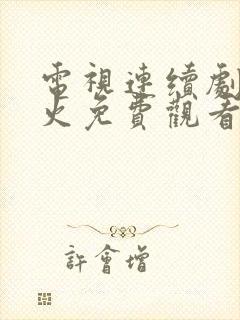 電視連續劇
火免費觀看
許會增